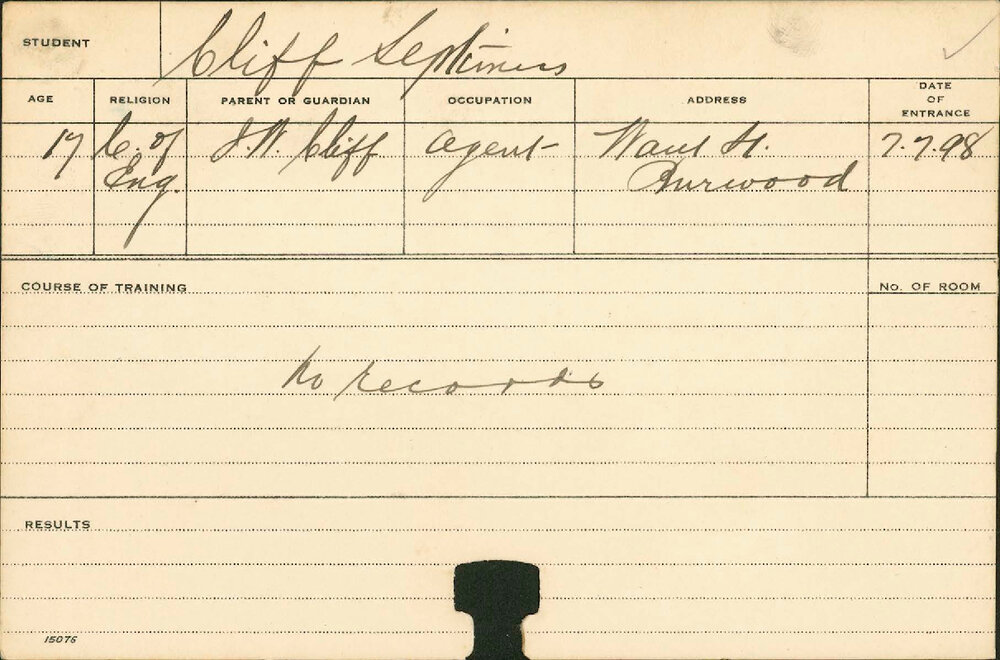 STUDENT
Cliff Septimus
AGE
RELIGION
PARENT OR GUARDIAN
OCCUPATION
ADDRESS
DATE
OF
ENTRANCE
17
C. of
Eng.
J. W. Cliff
Agent
Wau St.
Burwood
7.7.98
COURSE OF TRAINING
No. OF ROOM
No records
RESULTS
15076